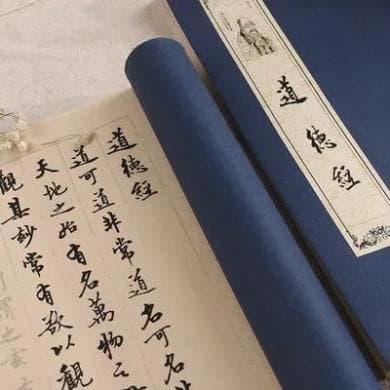 道德經
道德經
道可道非常道名可名非
天地之始有名萬物之
觀其妙常有欲以觀
謂之玄